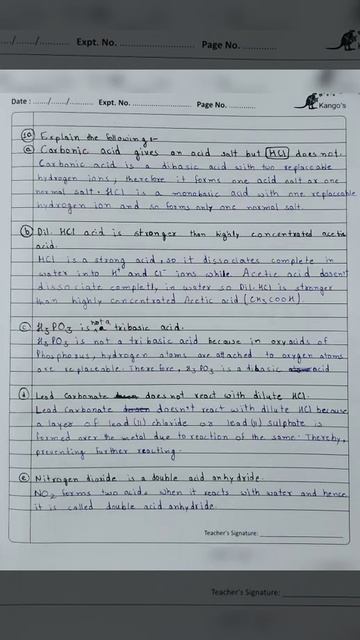 .../....../...... Expt. No. ............... Page No. ...............
Date : ....../....../...... Expt. No. ............... Page No. ............... Kango's
10 Explain the following:-
a Carbonic acid gives an acid salt but HCl does not.
Carbonic acid is a dibasic acid with two replaceable
hydrogen ions, therefore it forms one acid salt or one
normal salt. HCl is a monobasic acid with one replaceable
hydrogen ion and so forms only one normal salt.
b Dil. HCl acid is stronger than highly concentrated acetic
acid.
HCl is a strong acid, so it dissociates complete in
water into H+ and Cl- ions while Acetic acid dosen't
dissociate completly, in water so Dil. HCl is stronger
than highly concentrated Acetic acid (CH3COOH).
c H3PO3 is not a tribasic acid.
H3PO3 is not a tribasic acid because in oxyacids of
Phosphorus, hydrogen atoms are attached to oxygen atoms
are replaceable. Therefore, H3PO3 is a dibasic acid
d Lead Carbonate does not react with dilute HCl.
Lead Carbonate doesn't react with dilute HCl because
a layer of lead (II) chloride or lead (II) sulphate is
formed over the metal due to reaction of the same. Thereby,
preventing further reacting.
e Nitrogen dioxide is a double acid anhydride.
NO2 forms two acids when it reacts with water and hence
it is called double acid anhydride.
Teacher's Signature:
Teacher's Signature: